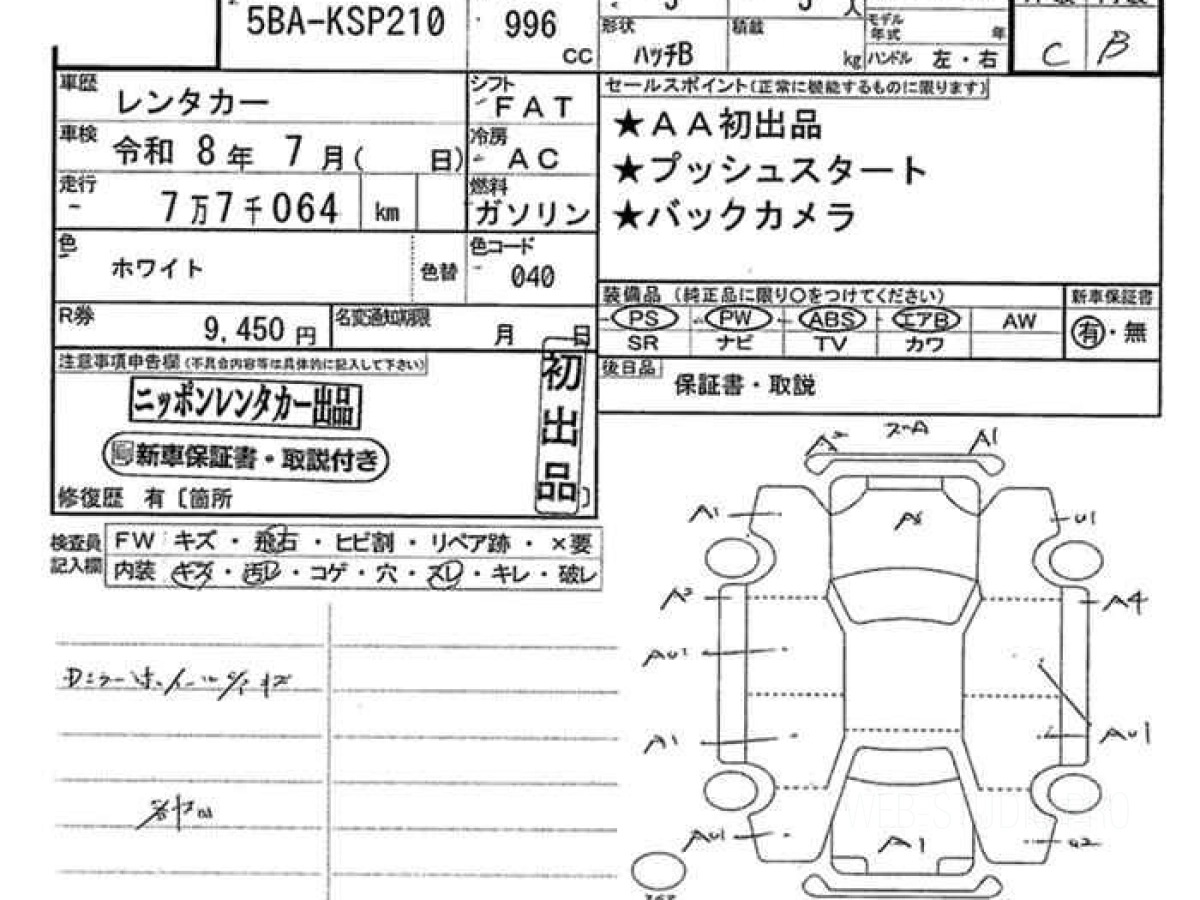 5BA-KSP210
996
CC
形状
ハッチB
積載
kg
人
モデル年式
年
ハンドル 左・右
C B
車歴
レンタカー
シフト
FAT
車検
令和 8年 7月( 日)
冷房
AC
走行
7万7千064 km
燃料
ガソリン
色
ホワイト
色替
色コード
040
R券
9,450 円
名変通知期限
月 日
セールスポイント(正常に機能するものに限ります)
★AA初出品
★プッシュスタート
★バックカメラ
装備品 (純正品に限り○をつけてください)
新車保証書
PS PW ABS エアB AW
有・無
SR ナビ TV カワ
後日品
保証書・取説
注意事項申告欄(不具合内容等は具体的に記入して下さい)
ニッポンレンタカー出品
新車保証書・取説付き
初出品
修復歴 有〔箇所 〕
検査員記入欄
FW キズ・飛石・ヒビ割・リペア跡・×要
内装 キズ・汚レ・コゲ・穴・スレ・キレ・破レ
A1
A1
U1
A4
A1
AU1
AU1
A1